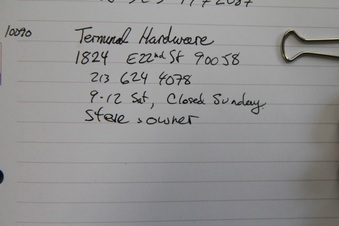 10090 Terminal Hardware
1824 E22nd St 90058
213 624 4078
9-12 Sat, Closed Sunday
Steve, owner